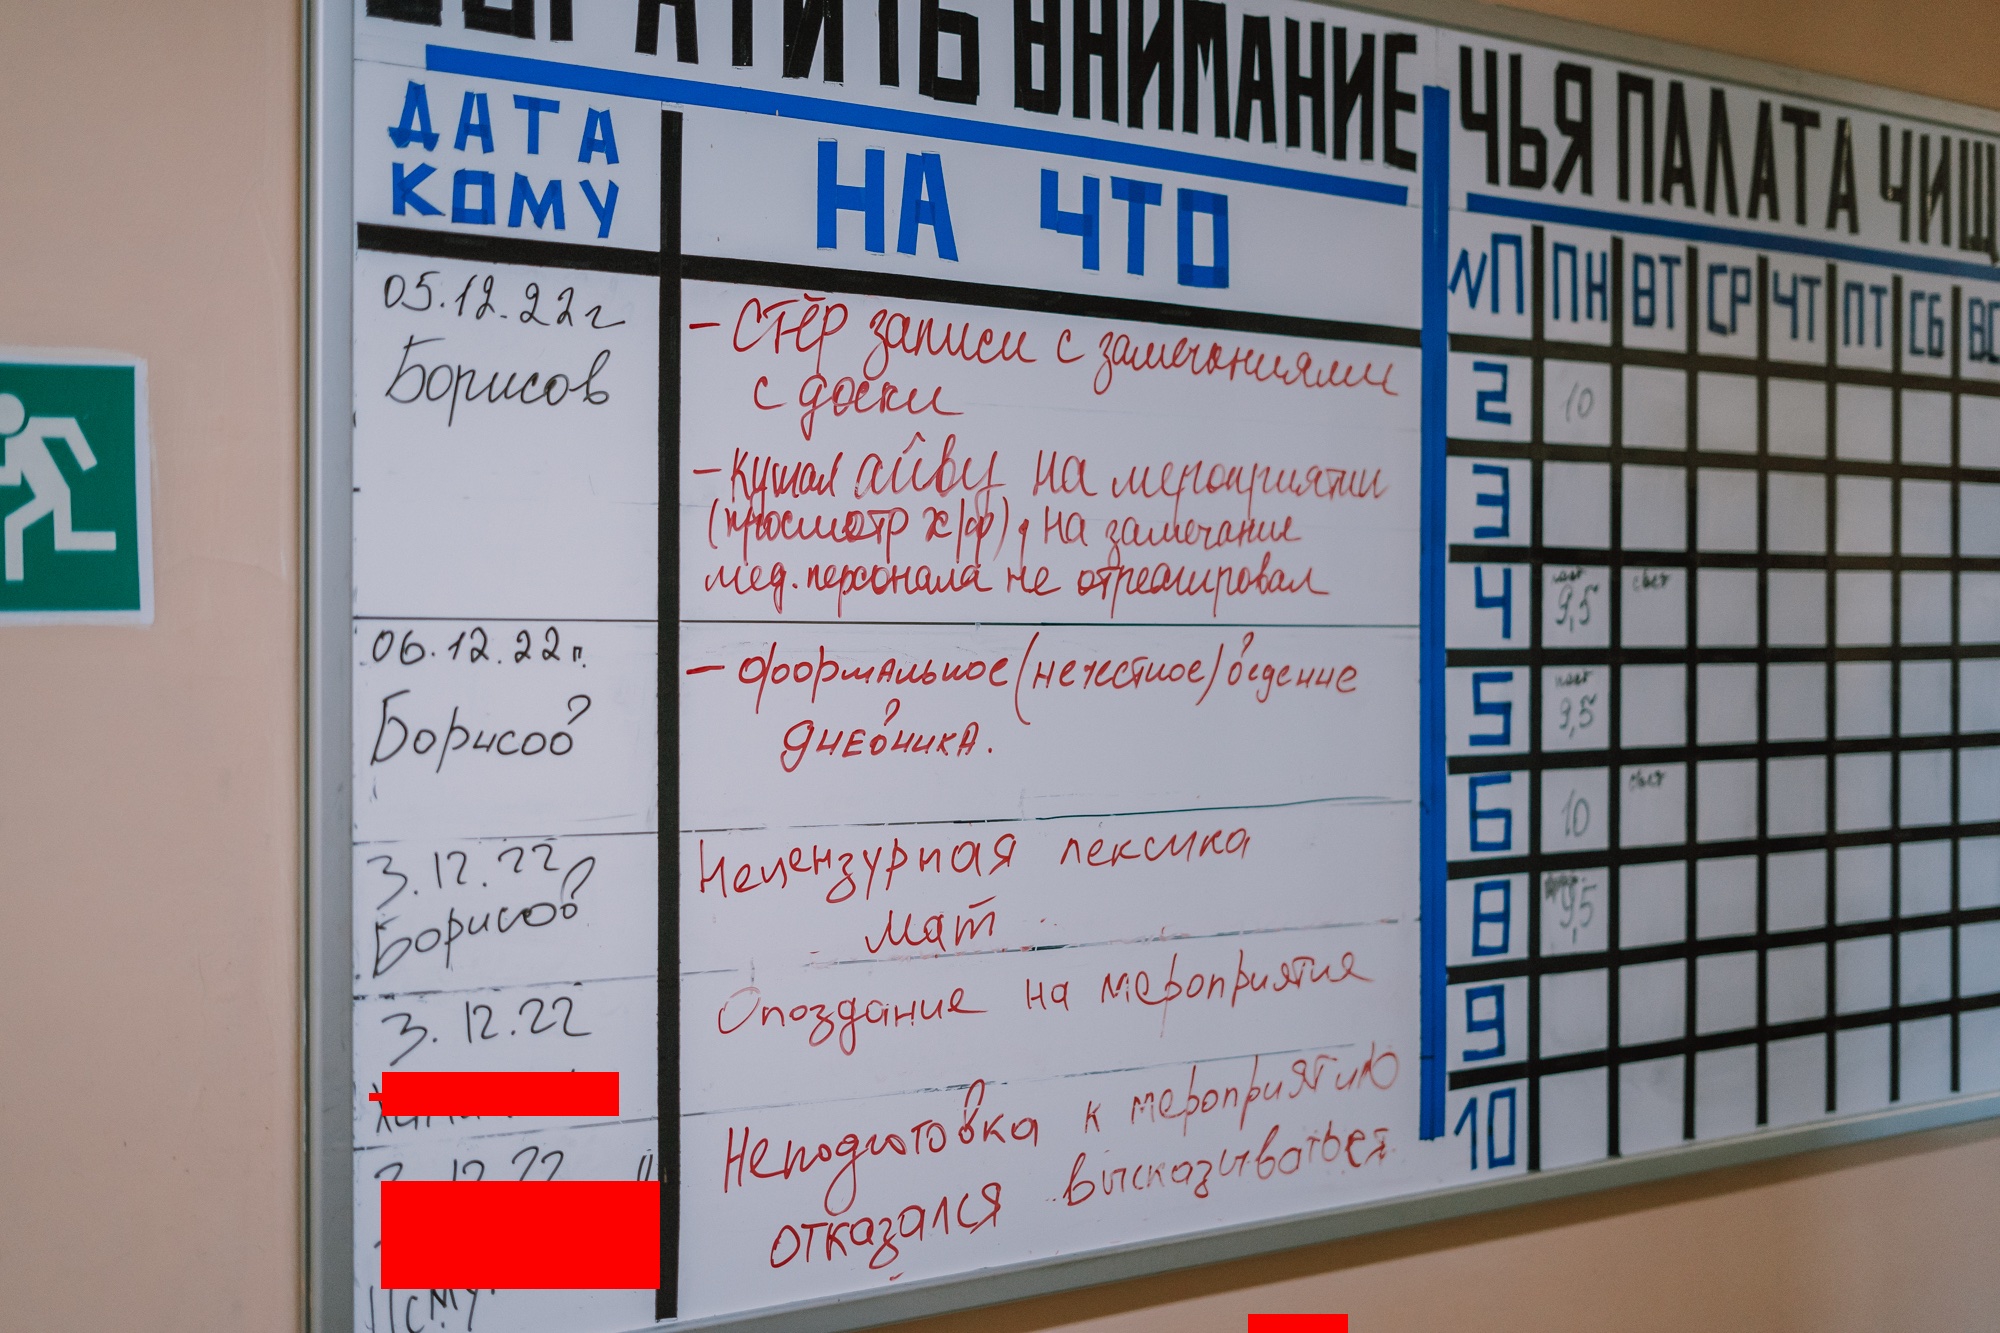 ОБРАТИТЬ ВНИМАНИЕ
ДАТА
КОМУ
НА ЧТО
05.12.22г
Борисов
- Стёр записи с замечаниями
с доски
- кушал айву на мероприятии
(просмотр х/ф), на замечание
мед. персонала не отреагировал
06.12.22г.
Борисов
- формальное (нечестное) ведение
дневника.
3.12.22
Борисов
Нецензурная лексика
мат
3.12.22
Опоздание на мероприятие
3.12.22
Неподготовка к мероприятию
отказался высказываться
ЧЬЯ ПАЛАТА ЧИЩ
№П ПН ВТ СР ЧТ ПТ СБ ВС
2 10
3
4 9,5 свет
5 9,5
6 10
8 9,5
9
10